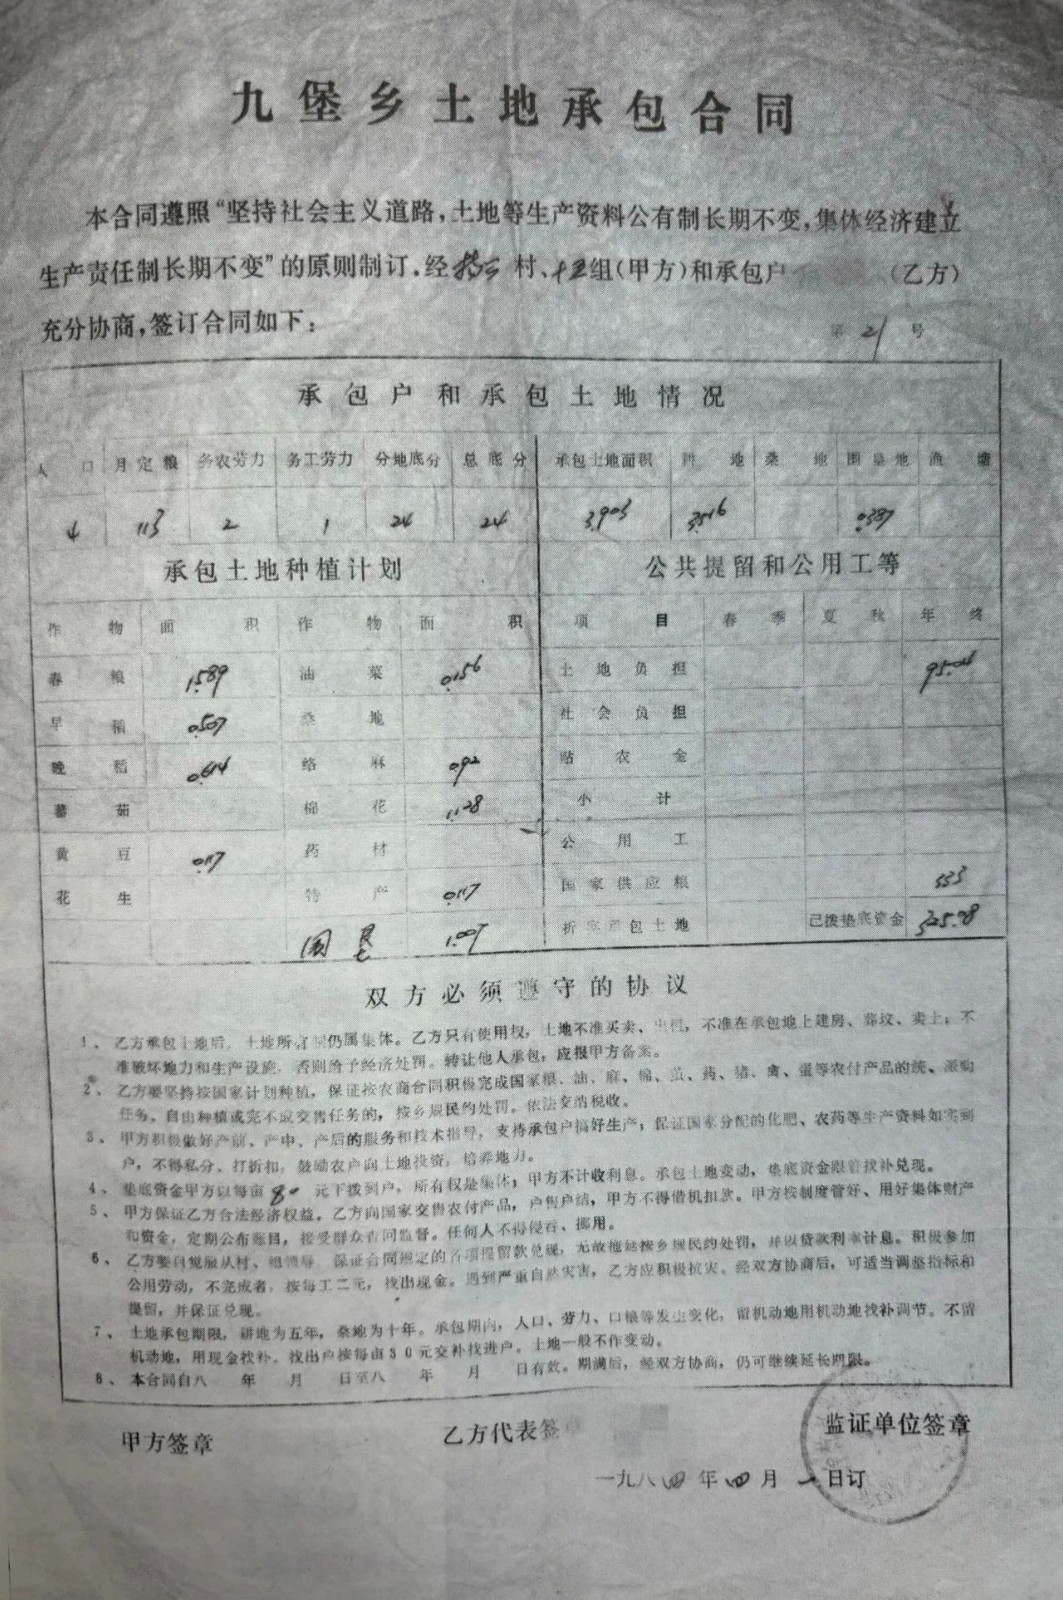 九堡乡土地承包合同
本合同遵照“坚持社会主义道路，土地等生产资料公有制长期不变，集体经济建立
生产责任制长期不变”的原则制订．经 村、十五组（甲方）和承包户 （乙方）
充分协商，签订合同如下：
第 21 号
承包户和承包土地情况
人口 月定粮 务农劳力 务工劳力 分地底分 总底分 承包土地面积 地 桑地 围垦地 渔塘
4 113 2 1 24 24 3.903 3.516 0.387
承包土地种植计划 公共提留和公用工等
作物 面积 作物 面积 项目 春季 夏秋 年终
春粮 1.589 油菜 0.156 土地负担 95.04
早稻 0.507 桑地 社会负担
晚稻 0.614 络麻 0.92 贴农金
蕃茄 棉花 1.128 小计
黄豆 0.117 药材 公用工
花生 特产 0.117 国家供应粮 553
围垦 1.007 折实承包土地 已拨垫底资金 325.08
双方必须遵守的协议
1、乙方承包土地后，土地所有制仍属集体。乙方只有使用权，土地不准买卖、出租，不准在承包地上建房、葬坟、卖土；不
准破坏地力和生产设施，否则给予经济处罚。转让他人承包，应报甲方备案。
2、乙方要坚持按国家计划种植，保证按农商合同积极完成国家粮、油、麻、棉、茧、药、猪、禽、蛋等农付产品的统、派购
任务。自由种植或完不成交售任务的，按乡规民约处罚。依法交纳税收。
3、甲方积极做好产前、产中、产后的服务和技术指导，支持承包户搞好生产；保证国家分配的化肥、农药等生产资料如实到
户，不得私分、打折扣，鼓励农户向土地投资，培养地力。
4、垫底资金甲方以每亩80元下拨到户，所有权是集体；甲方不计收利息。承包土地变动，垫底资金跟着找补兑现。
5、甲方保证乙方合法经济权益。乙方向国家交售农付产品，户售户结，甲方不得借机扣款。甲方按制度管好、用好集体财产
和资金，定期公布账目，接受群众查问监督。任何人不得侵吞、挪用。
6、乙方要自觉服从村、组领导，保证合同规定的各项提留款兑现，无故拖延按乡规民约处罚，并以贷款利率计息。积极参加
公用劳动，不完成者，按每工二元，找出现金。遇到严重自然灾害，乙方应积极抗灾。经双方协商后，可适当调整指标和
提留，并保证兑现。
7、土地承包期限，耕地为五年，桑地为十年。承包期内，人口、劳力、口粮等发生变化，留机动地用机动地找补调节。不留
机动地，用现金找补。找出户按每亩30元交补找进户。土地一般不作变动。
8、本合同自八 年 月 日至八 年 月 日有效。期满后，经双方协商，仍可继续延长期限。
甲方签章 乙方代表签章 监证单位签章
一九八四年四月一日订